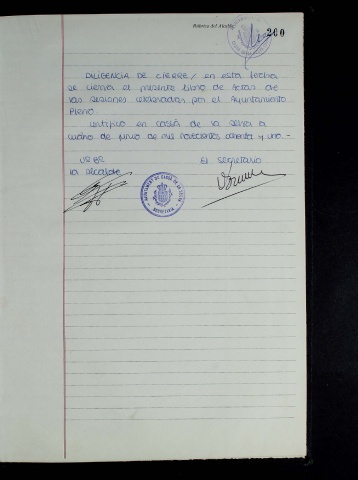 Rúbrica del Alcalde
200
DILIGENCIA DE CIERRE/ en esta fecha
se cierra el presente libro de Actas de
las sesiones celebradas por el Ayuntamiento
Pleno.
Certifico en Cassà de la Selva a
de junio de mil novecientos ochenta y uno.-
El Secretario
la Alcalde
AJUNTAMENT DE CASSÀ DE LA SELVA
SECRETARIA